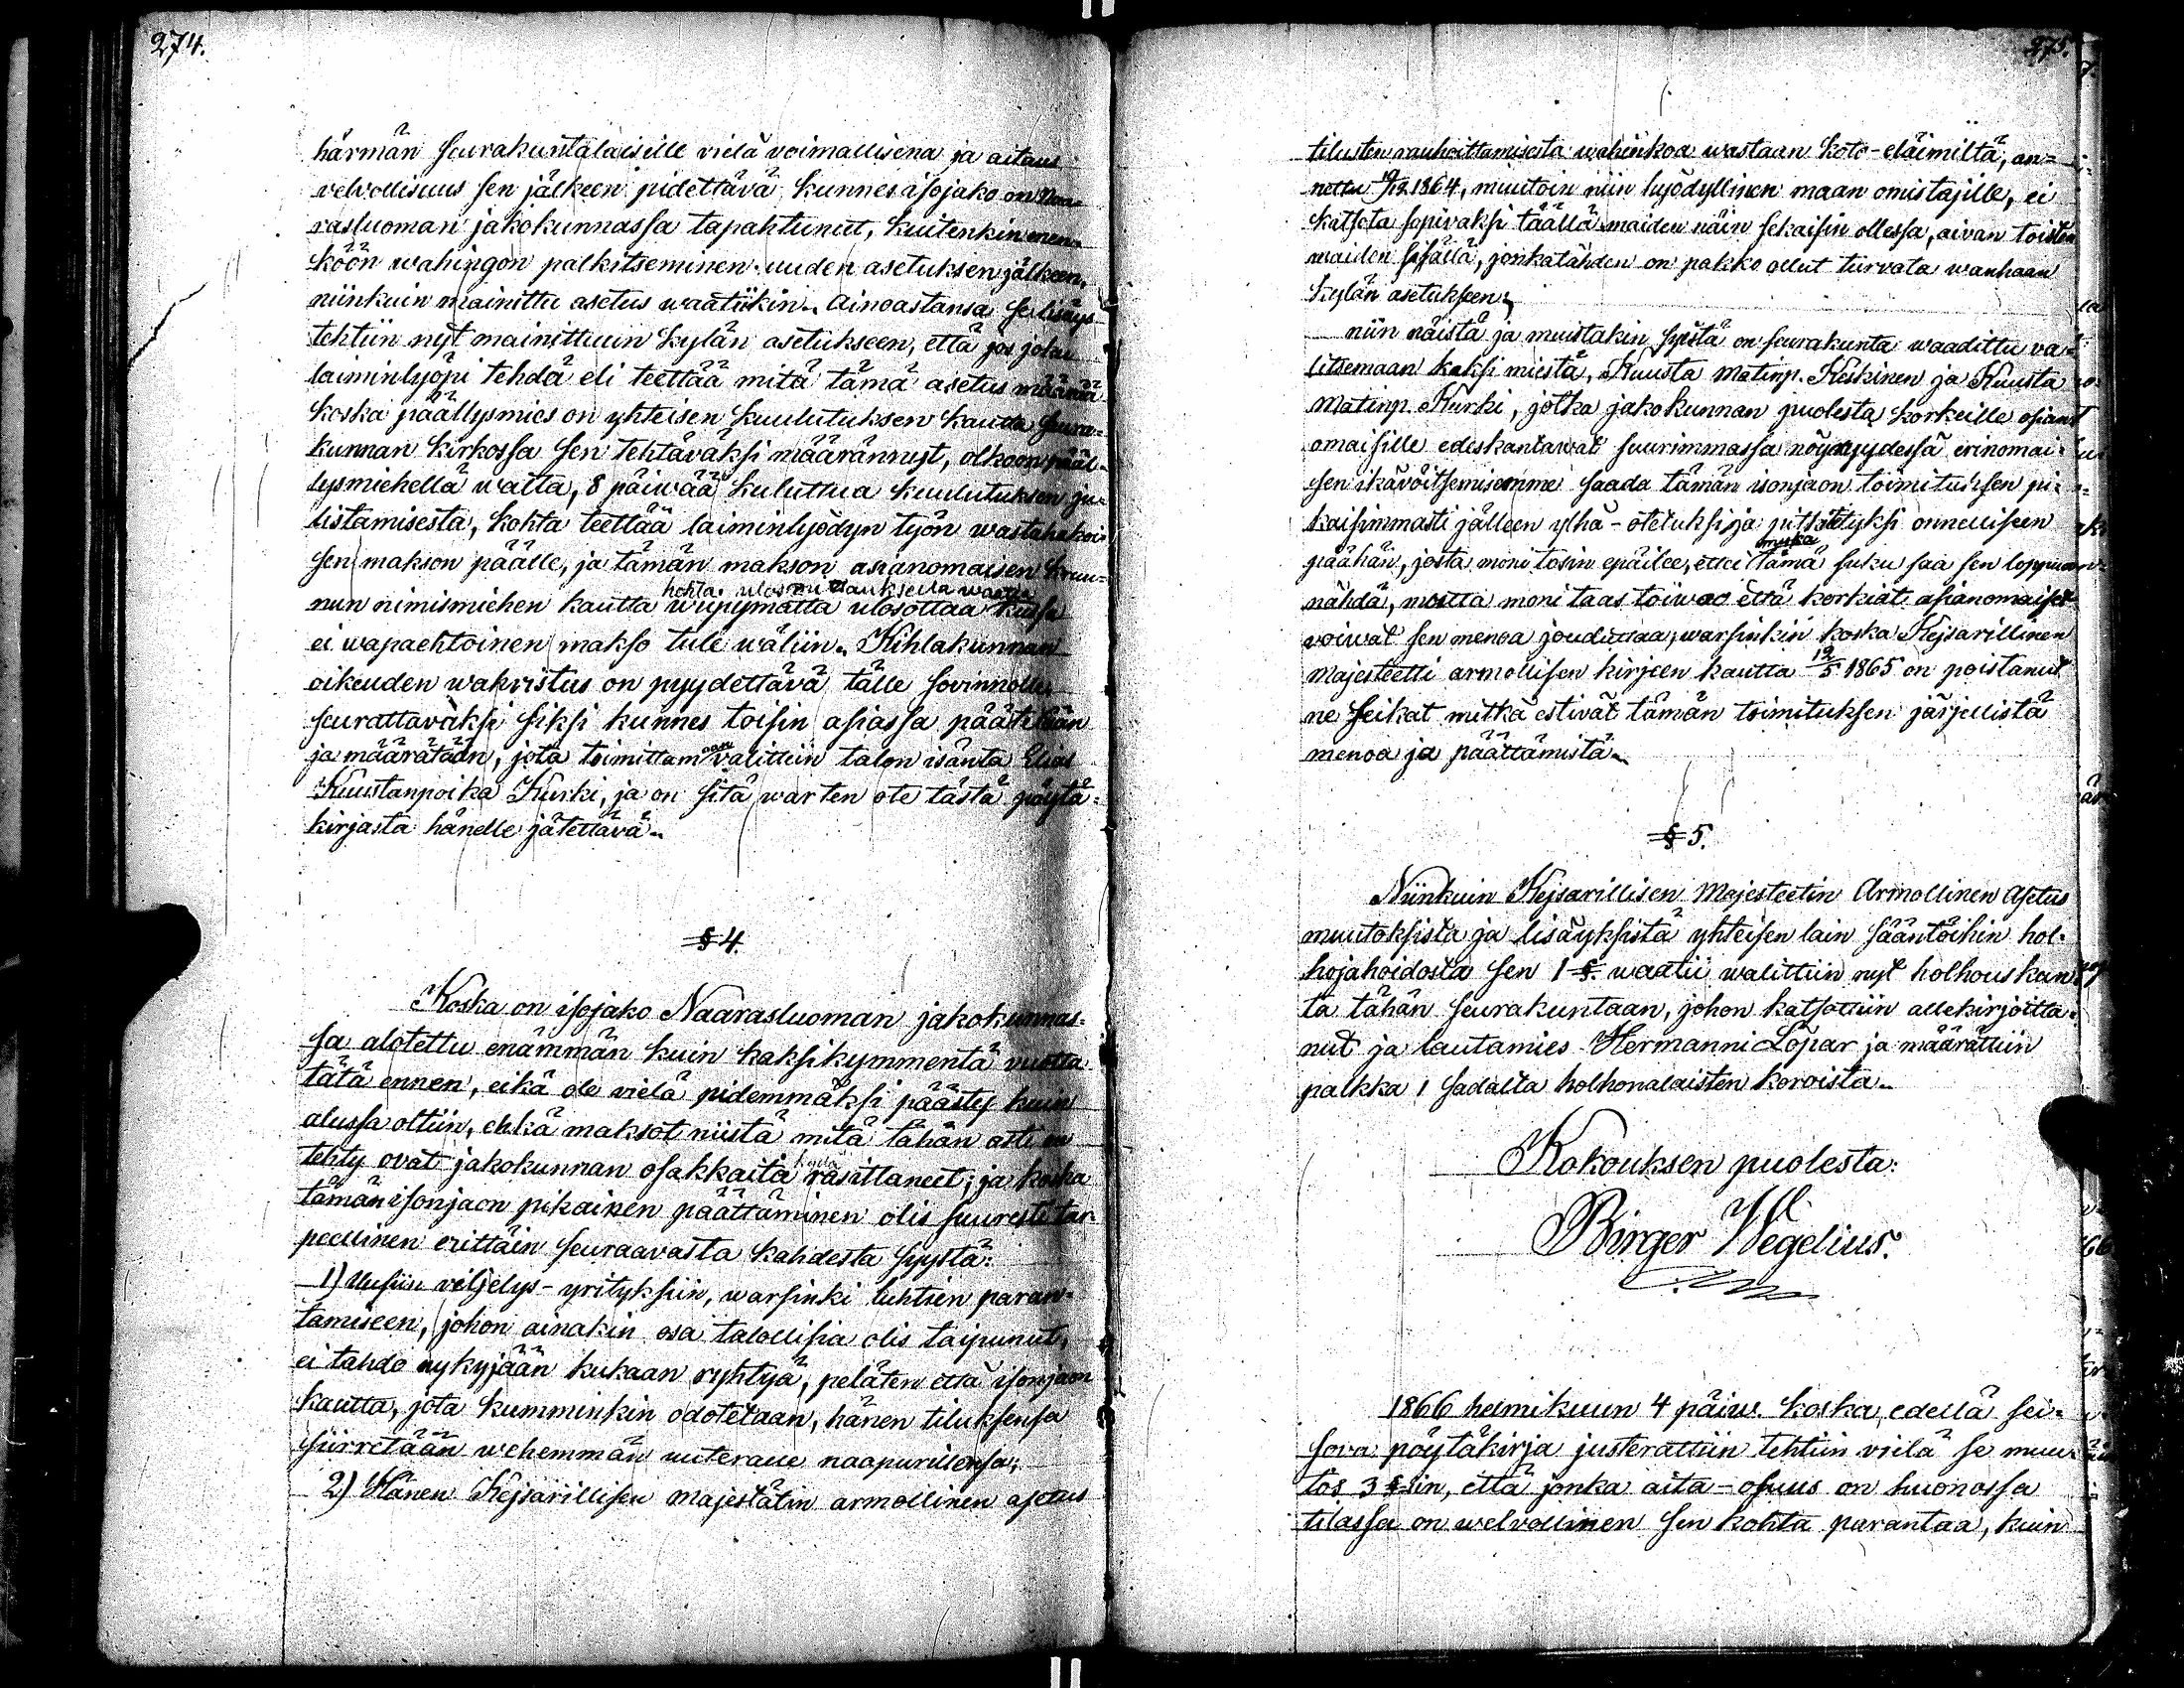 274.
härmän seurakuntalaisille vielä voimallisena ja aitaus
velvollisuus sen jälkeen pidettävä kunnes isojako on Naa-
rasluoman jakokunnassa tapahtunut, kuitenkin men-
köön wahingon palkitseminen uuden asetuksen jälkeen,
niinkuin mainittu asetus waatiikin. Ainoastansa se lisäys
tehtiin nyt mainittuun kylän asetukseen, että jos joku
laiminlyöpi tehdä eli teettää mitä tämä asetus määrää
koska päällysmies on yhteisen kuulutuksen kautta seura-
kunnan kirkossa sen tehtäväksi määrännyt, olkoon pääl-
lysmiehellä walta, 8 päiwää kuluttua kuulutuksen ju-
listamisesta, kohta teettää laiminlyödyn työn wastahakoi-
sen makson päälle, ja tämän makson asianomaisen kruu-
kohta ulosmittauksella waatia
nun nimismiehen kautta wiipymättä ulosottaa kussa
ei wapaehtoinen makso tule wäliin. Kihlakunnan
oikeuden wahvistus on pyydettävä tälle sovinnolle
seurattavaksi siksi kunnes toisin asiassa päätetään
ja määrätään, jota toimittamaan valittiin talon isäntä Elias
Kuustanpoika Kurki, ja on sitä warten ote tästä pöytä-
kirjasta hänelle jätettävä.
§ 4.
Koska on isojako Naarasluoman jakokunnas-
sa alotettu enämmän kuin kaksikymmentä vuotta
tätä ennen, eikä ole vielä pidemmäksi päästy kuin
alussa oltiin, ehkä maksot niistä mitä tähän asti on
tehty ovat jakokunnan osakkaita rasittaneet; ja koska
tämän isonjaon pikainen päättäminen olis suuresti tar-
peellinen erittäin seuraavasta kahdesta syystä:
1) Uusiin viljelys-yrityksiin, warsinki luhtien paran-
tamiseen, johon ainakin osa talollisia olis taipunut,
ei tahdo nykyjään kukaan ryhtyä, peläten että isonjaon
kautta, jota kumminkin odotetaan, hänen tiluksensa
siirretään wehemmän uuteralle naapurillensa;
2) Hänen Kejsarillisen majestätin armollinen asetus
275.
tilusten rauhoittamisesta wahinkoa wastaan koto-eläimiltä, an-
nettu 19/12 1864, muutoin niin hyödyllinen maan omistajille, ei
katsota sopivaksi täällä maiden näin sekaisin ollessa, aivan toisten
maiden sisällä, jonkatähden on pakko ollut turvata wanhaan
kylän asetukseen;
niin näistä ja muistakin syistä on seurakunta waadittu va-
litsemaan kaksi miestä, Kuusta Matinp. Keskinen ja Kuusta
Matinp. Kurki, jotka jakokunnan puolesta korkeille asian-
omaisille edeskantawat suurimmassa nöyryydessä erinomai-
sen ikävöitsemisemme saada tämän isonjaon toimituksen pi-
kaisimmasti jälleen ylhä-otetuksi ja pitkitetyksi onnelliseen
päähän, josta moni tosin epäilee, ettei tämä suku saa sen loppua
nähdä, mutta moni taas toiwoo että korkiat asianomaiset
voiwat sen menoa joudittaa, warsinkin koska Kejsarillinen
Majesteetti armollisen kirjeen kautta 12/5 1865 on poistanut
ne seikat mitkä estivät tämän toimituksen järjellistä
menoa ja päättämistä.
§ 5.
Niinkuin Kejsarillisen Majesteetin Armollinen Asetus
muutoksista ja lisäyksistä yhteisen lain sääntöihin hol-
hojahoidosta sen 1 §. waatii walittiin nyt holhouskun-
ta tähän seurakuntaan, johon katsottiin allekirjoitta-
nut ja lautamies Hermanni Lopar ja määrättiin
palkka 1 sadalta holhonalaisten koroista.
Kokouksen puolesta:
Birger Wegelius.
1866 helmikuun 4 päiw. koska edellä sei-
sova pöytäkirja justerattiin tehtiin vielä se muu-
tos 3 §:sin, että jonka aita-osuus on huonossa
tilassa on welvollinen sen kohta parantaa, kuin